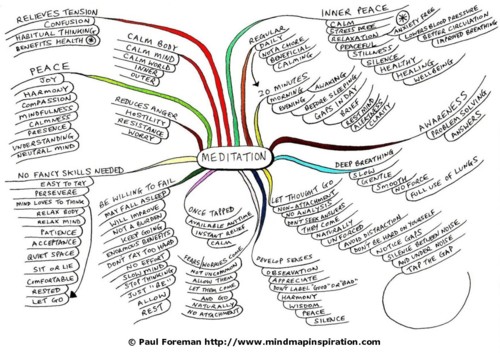 RELIEVES TENSION
CONFUSION
HABITUAL THINKING
BENEFITS HEALTH
PEACE
JOY
HARMONY
COMPASSION
MINDFULNESS
CALMNESS
PRESENCE
UNDERSTANDING
NEUTRAL MIND
CALM BODY
CALM MIND
CALM WORLD
INNER
OUTER
REDUCES ANGER
HOSTILITY
RESISTANCE
WORRY
NO FANCY SKILLS NEEDED
EASY TO TRY
PERSEVERE
MIND LOVES TO THINK
RELAX BODY
RELAX MIND
PATIENCE
ACCEPTANCE
QUIET SPACE
SIT OR LIE
COMFORTABLE
RESTED
LET GO
BE WILLING TO FAIL
MAY FALL ASLEEP
WILL IMPROVE
NOT A BURDEN
KEEP GOING
ENORMOUS BENEFITS
DON'T TRY TOO HARD
NO EFFORT
SLOW MIND
STOP THINKING
JUST "BE"
ALLOW
REST
MEDITATION
ONCE TAPPED
AVAILABLE ANYTIME
INSTANT RELIEF
CALM
FEARS/WORRIES COME
NOT UNCOMMON
ALLOW THEM
LET THEM COME
AND GO
NATURALLY
NO ATTACHMENT
DEVELOP SENSES
OBSERVATION
APPRECIATE
DON'T LABEL "GOOD" OR "BAD"
HARMONY
WISDOM
PEACE
SILENCE
REGULAR
DAILY
NOT A CHORE
BENEFICIAL
CALMING
INNER PEACE
CALM
STRESS FREE
RELAXATION
PEACEFUL
STILLNESS
SILENCE
HEALTHY
HEALING
WELLBEING
ANXIETY FREE
LOWERS BLOOD PRESSURE
BETTER CIRCULATION
IMPROVED BREATHING
20 MINUTES
MORNING
AWAKING
EVENING
BEFORE SLEEPING
GAPS IN DAY
BRIEF
RESTROOM
CLARITY
AWARENESS
PROBLEM SOLVING
ANSWERS
DEEP BREATHING
SLOW
GENTLE
SMOOTH
NO FORCE
FULL USE OF LUNGS
LET THOUGHT GO
NON-ATTACHMENT
NO ANALYSIS
DON'T SEEK ANSWERS
THEY COME
NATURALLY
UNFORCED
AVOID DISTRACTION
DON'T BE HARD ON YOURSELF
NOTICE GAPS
SILENCE BETWEEN NOISE
AND UNDER NOISE
TAP THE GAP
© Paul Foreman http://www.mindmapinspiration.com